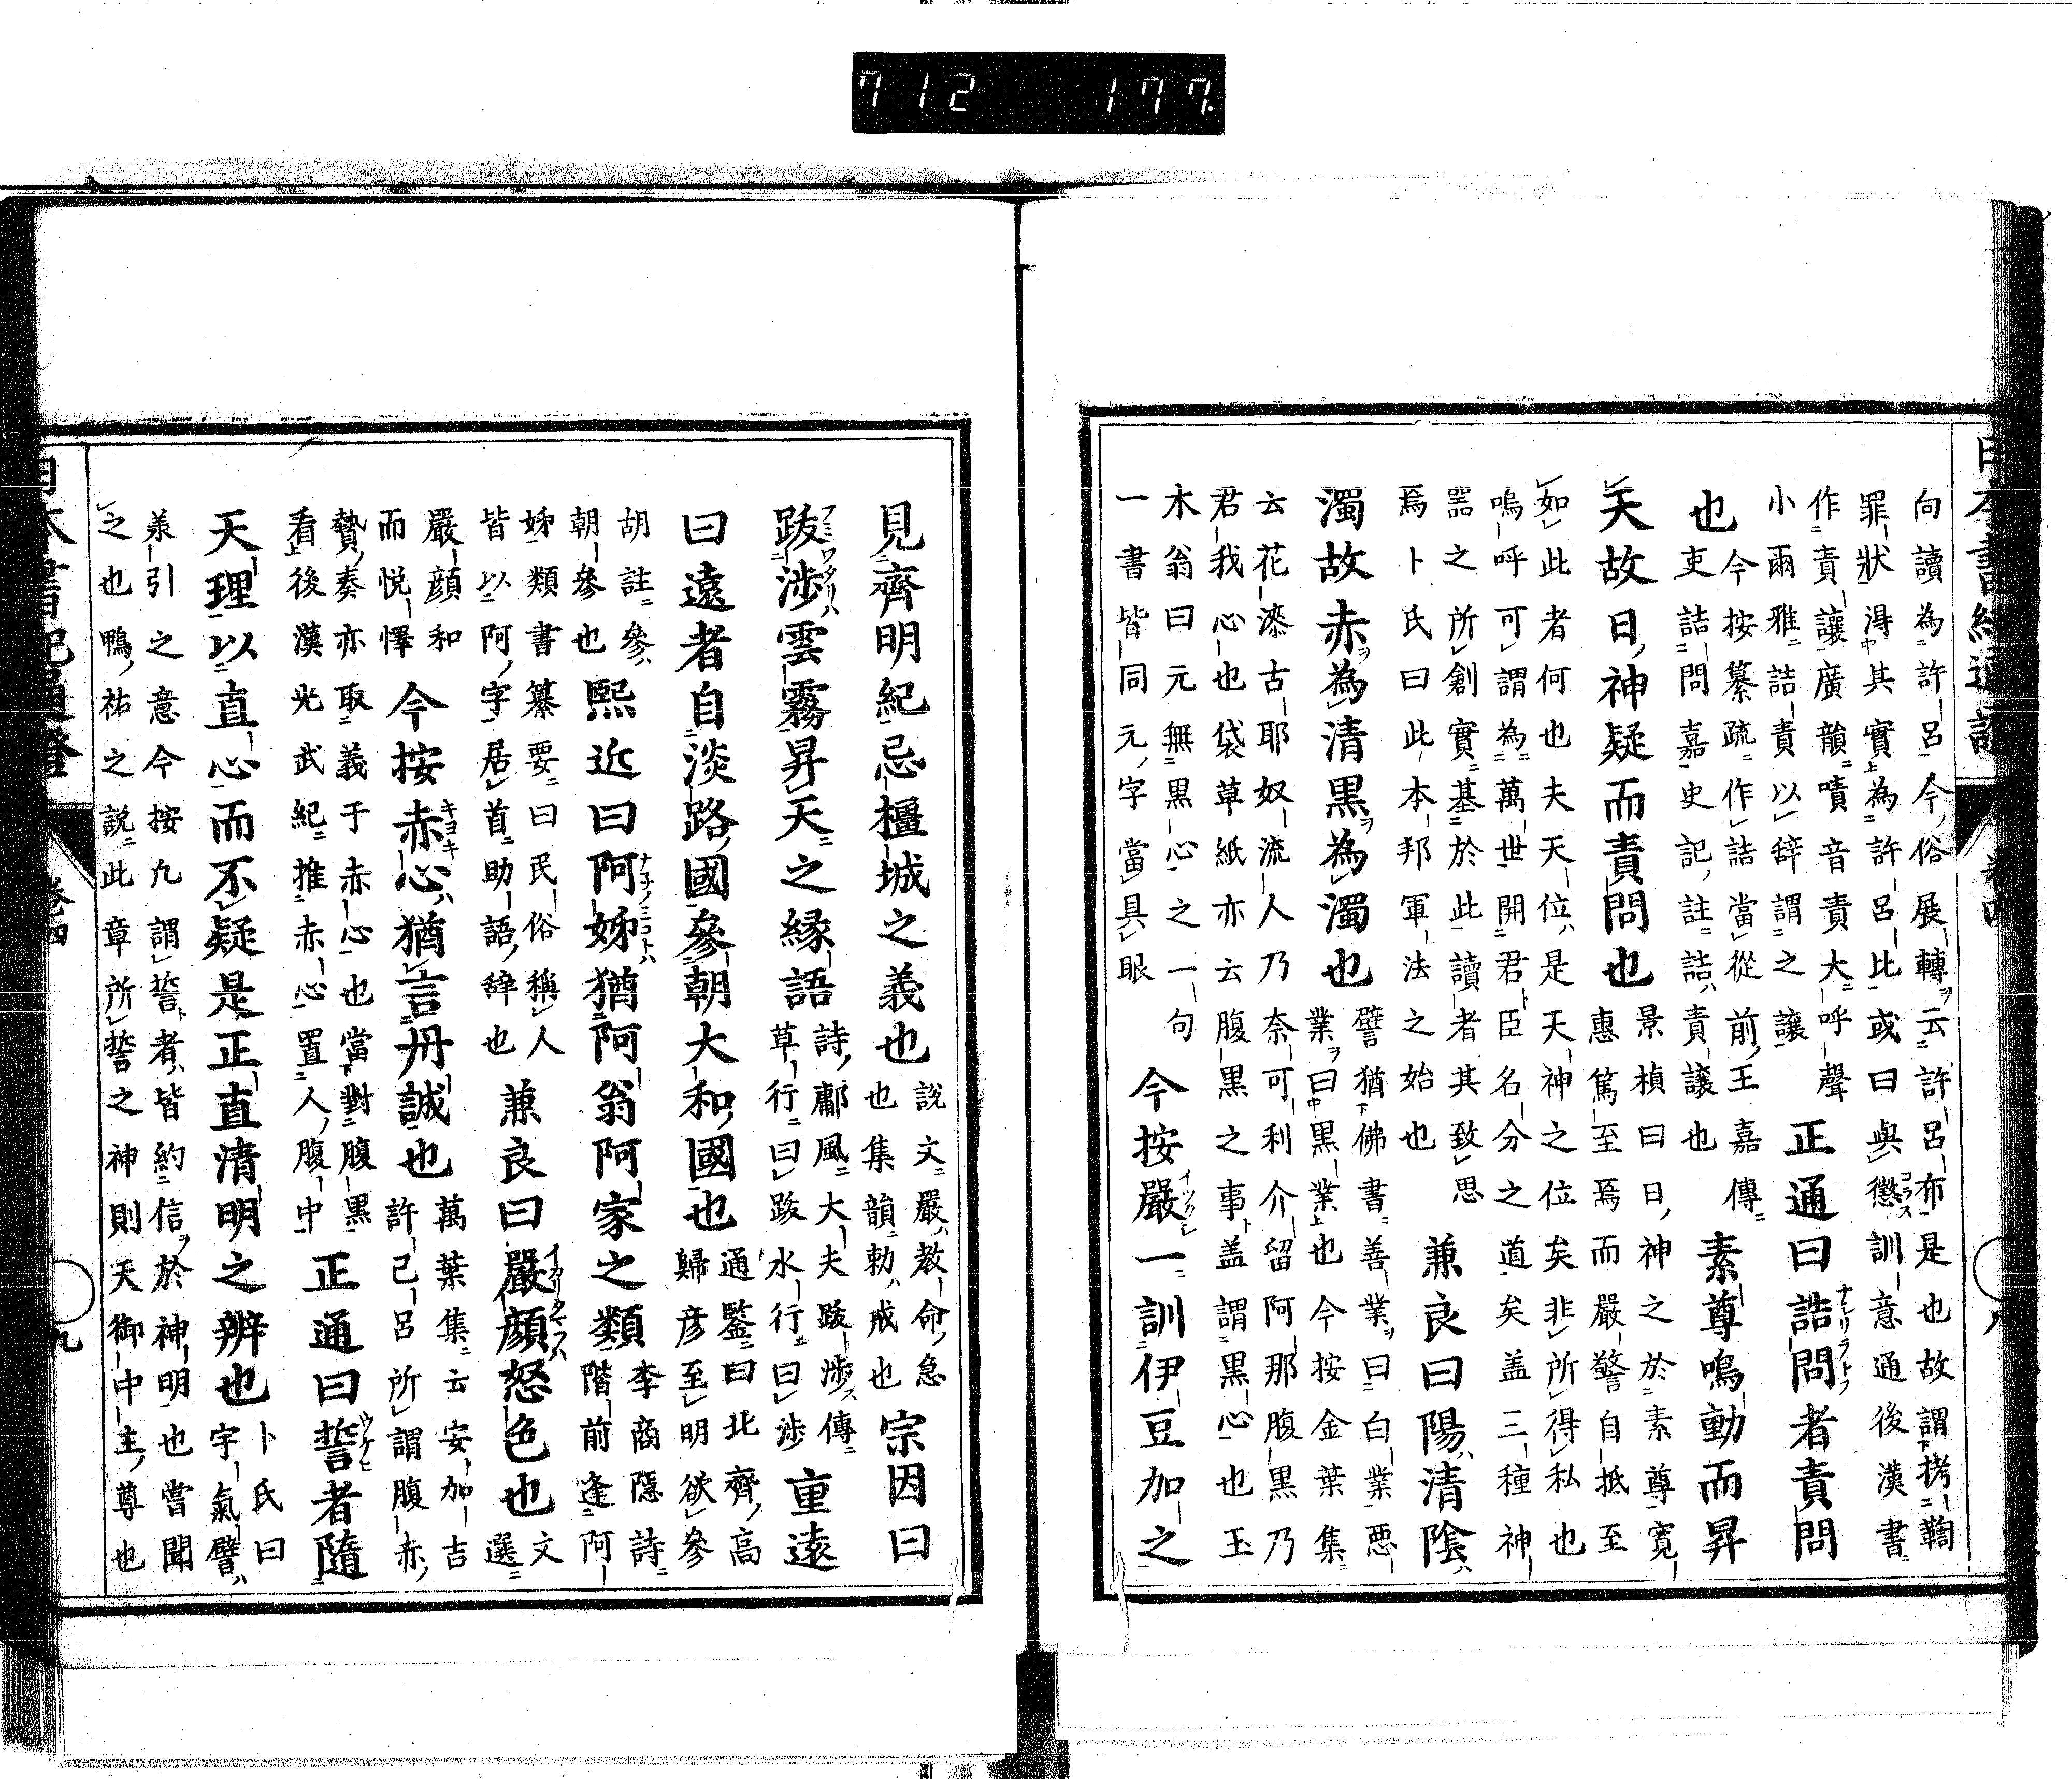 日本書紀通證 卷四 八
向讀為許呂今俗展轉ヲ云許呂布是也故謂拷鞫
罪狀淂其實為許呂比或曰與懲コラス訓意通後漢書
作責讓廣韻嘖音責大呼聲
小爾雅詰責以辞謂之讓
正通曰誥問ナシリラトフ者責問
也
今按纂疏作詰當從前王嘉傳
吏詰問嘉史記註詰責讓也
素尊鳴動而昇
天故日神疑而責問也
景楨曰日神之於素尊寛
惠篤至焉而嚴警自抵至
如此者何也夫天位ハ是天神之位矣非所得私也
嗚呼可謂為萬世開君臣名分之道矣盖三種神
噐之所創實基於此讀者其致思
焉卜氏曰此本邦軍法之始也
兼良曰陽ハ清陰ハ
濁故赤ヲ為清黒ヲ為濁也
譬猶佛書善業ヲ曰白業悪
業ヲ曰黒業也今按金葉集
云花漆古耶奴流人乃奈可利介留阿那腹黒乃
君我心也袋草紙亦云腹黒之事ト盖謂黒心也玉
木翁曰元無黒心之一句
一書皆同元字當具眼
今按嚴イツクシ一訓伊豆加之
見齊明紀忌橿城之義也
説文嚴ハ教命急
也集韻勅ハ戒也
宗因曰
跋渉フミワタリハ雲霧昇天之縁語
詩鄘風大夫跋渉ス傳
草行曰跋水行曰渉
重遠
曰遠者自淡路國參朝大和國也
通鑒曰北齊高
歸彦至明欲參
胡註參ハ
朝參也
熙近曰阿姊ナネノミコトハ猶阿翁阿家之類
李商隠詩
階前逢阿
姊類書纂要曰民俗稱人
皆以阿字居首助語辞也
兼良曰嚴顔イカリタマフハ怒色也
文
選
嚴顔和
而悦懌
今按赤心キヨキハ猶言丹誠也
萬葉集云安加吉
許己呂所謂腹赤
贄奏亦取義于赤心也當對腹黒
看後漢光武紀推赤心置人腹中
正通曰誓ウケヒ者隨
天理以直心而不疑是正直清明之辨也
卜氏曰
宇氣譬ハ
羕引之意今按凢謂誓ト者ハ皆約信ヲ於神明也嘗聞
之也鴨祐之説此章所誓之神則天御中主尊也
日本書紀通證 卷四 九
712 177